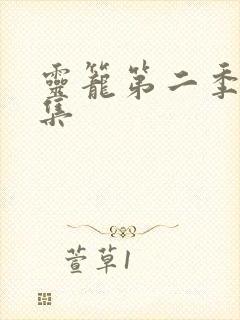 靈籠第二季
集
萱草1